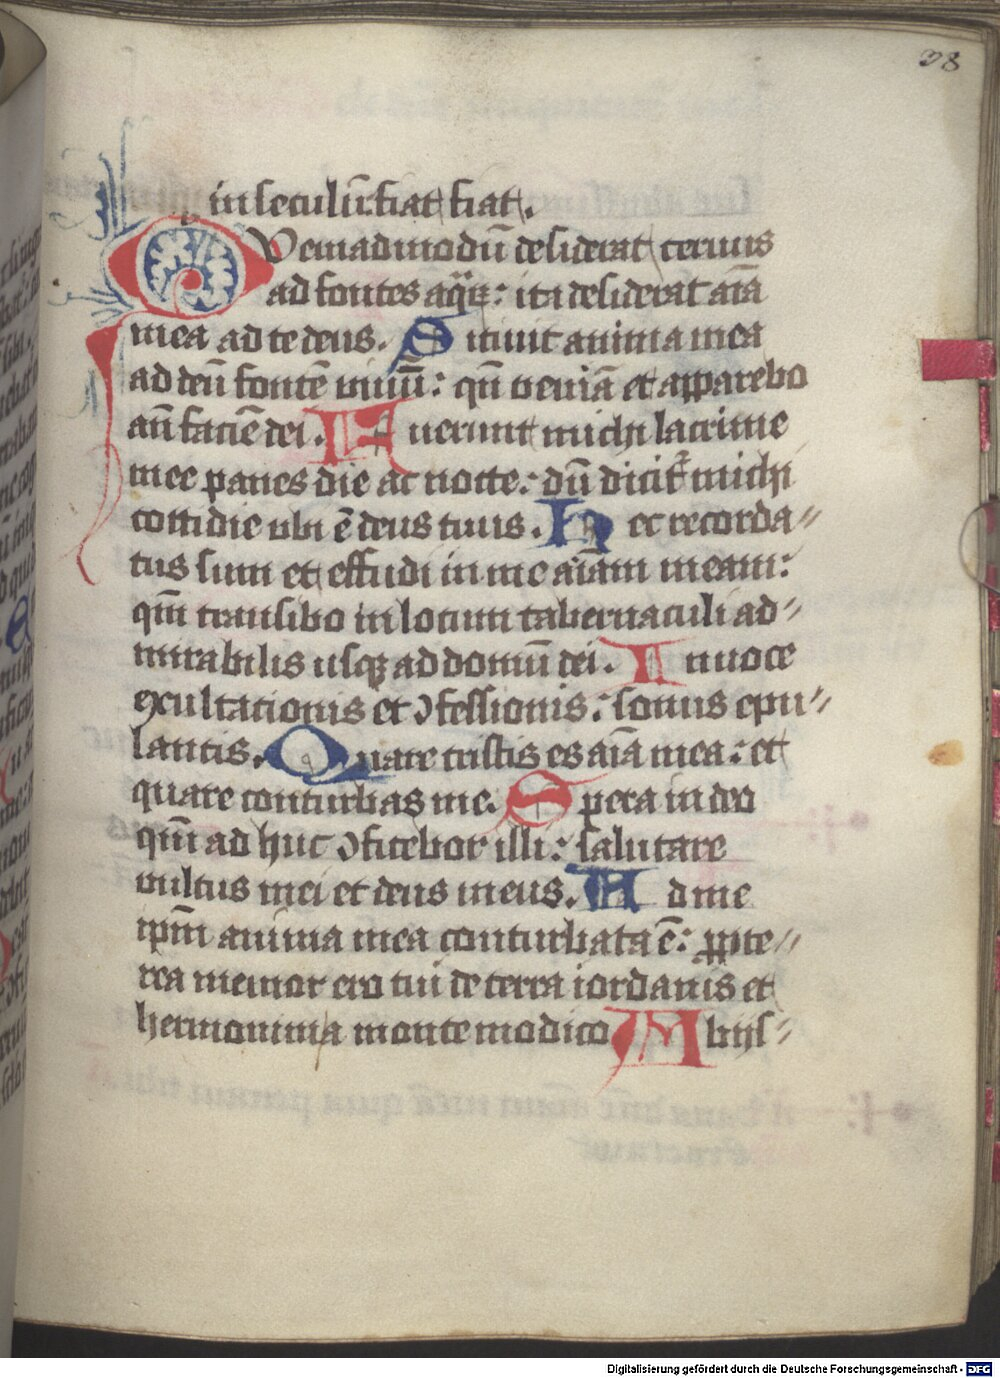 38
in seculū. fiat fiat.
QVemadmodū desiderat ceruus
ad fontes aquaꝝ: ita desiderat aīa
mea ad te deus. Sitiuit anima mea
ad deū fontē uiuū: qn̄ veniā et apparebo
an̄ faciē dei. Fuerunt michi lacrime
mee panes die ac nocte: dū dicit᷑ michi
cottidie ubi ē deus tuus. Hec recorda⸗
tus sum et effudi in me aīam meam:
qm̄ transibo in locum tabernaculi ad⸗
mirabilis usqꝫ ad domū dei. In uoce
exultationis et ꝯfessionis: sonus epu⸗
lantis. Quare tristis es aīa mea: et
quare conturbas me. Spera in deo
qm̄ ad huc ꝯfitebor illi: salutare
uultus mei et deus meus. Ad me
ipm̄ anima mea conturbata ē: ꝓpte⸗
rea memor ero tui de terra iordanis et
hermoniim a monte modico Abijs⸗
Digitalisierung gefördert durch die Deutsche Forschungsgemeinschaft - DFG